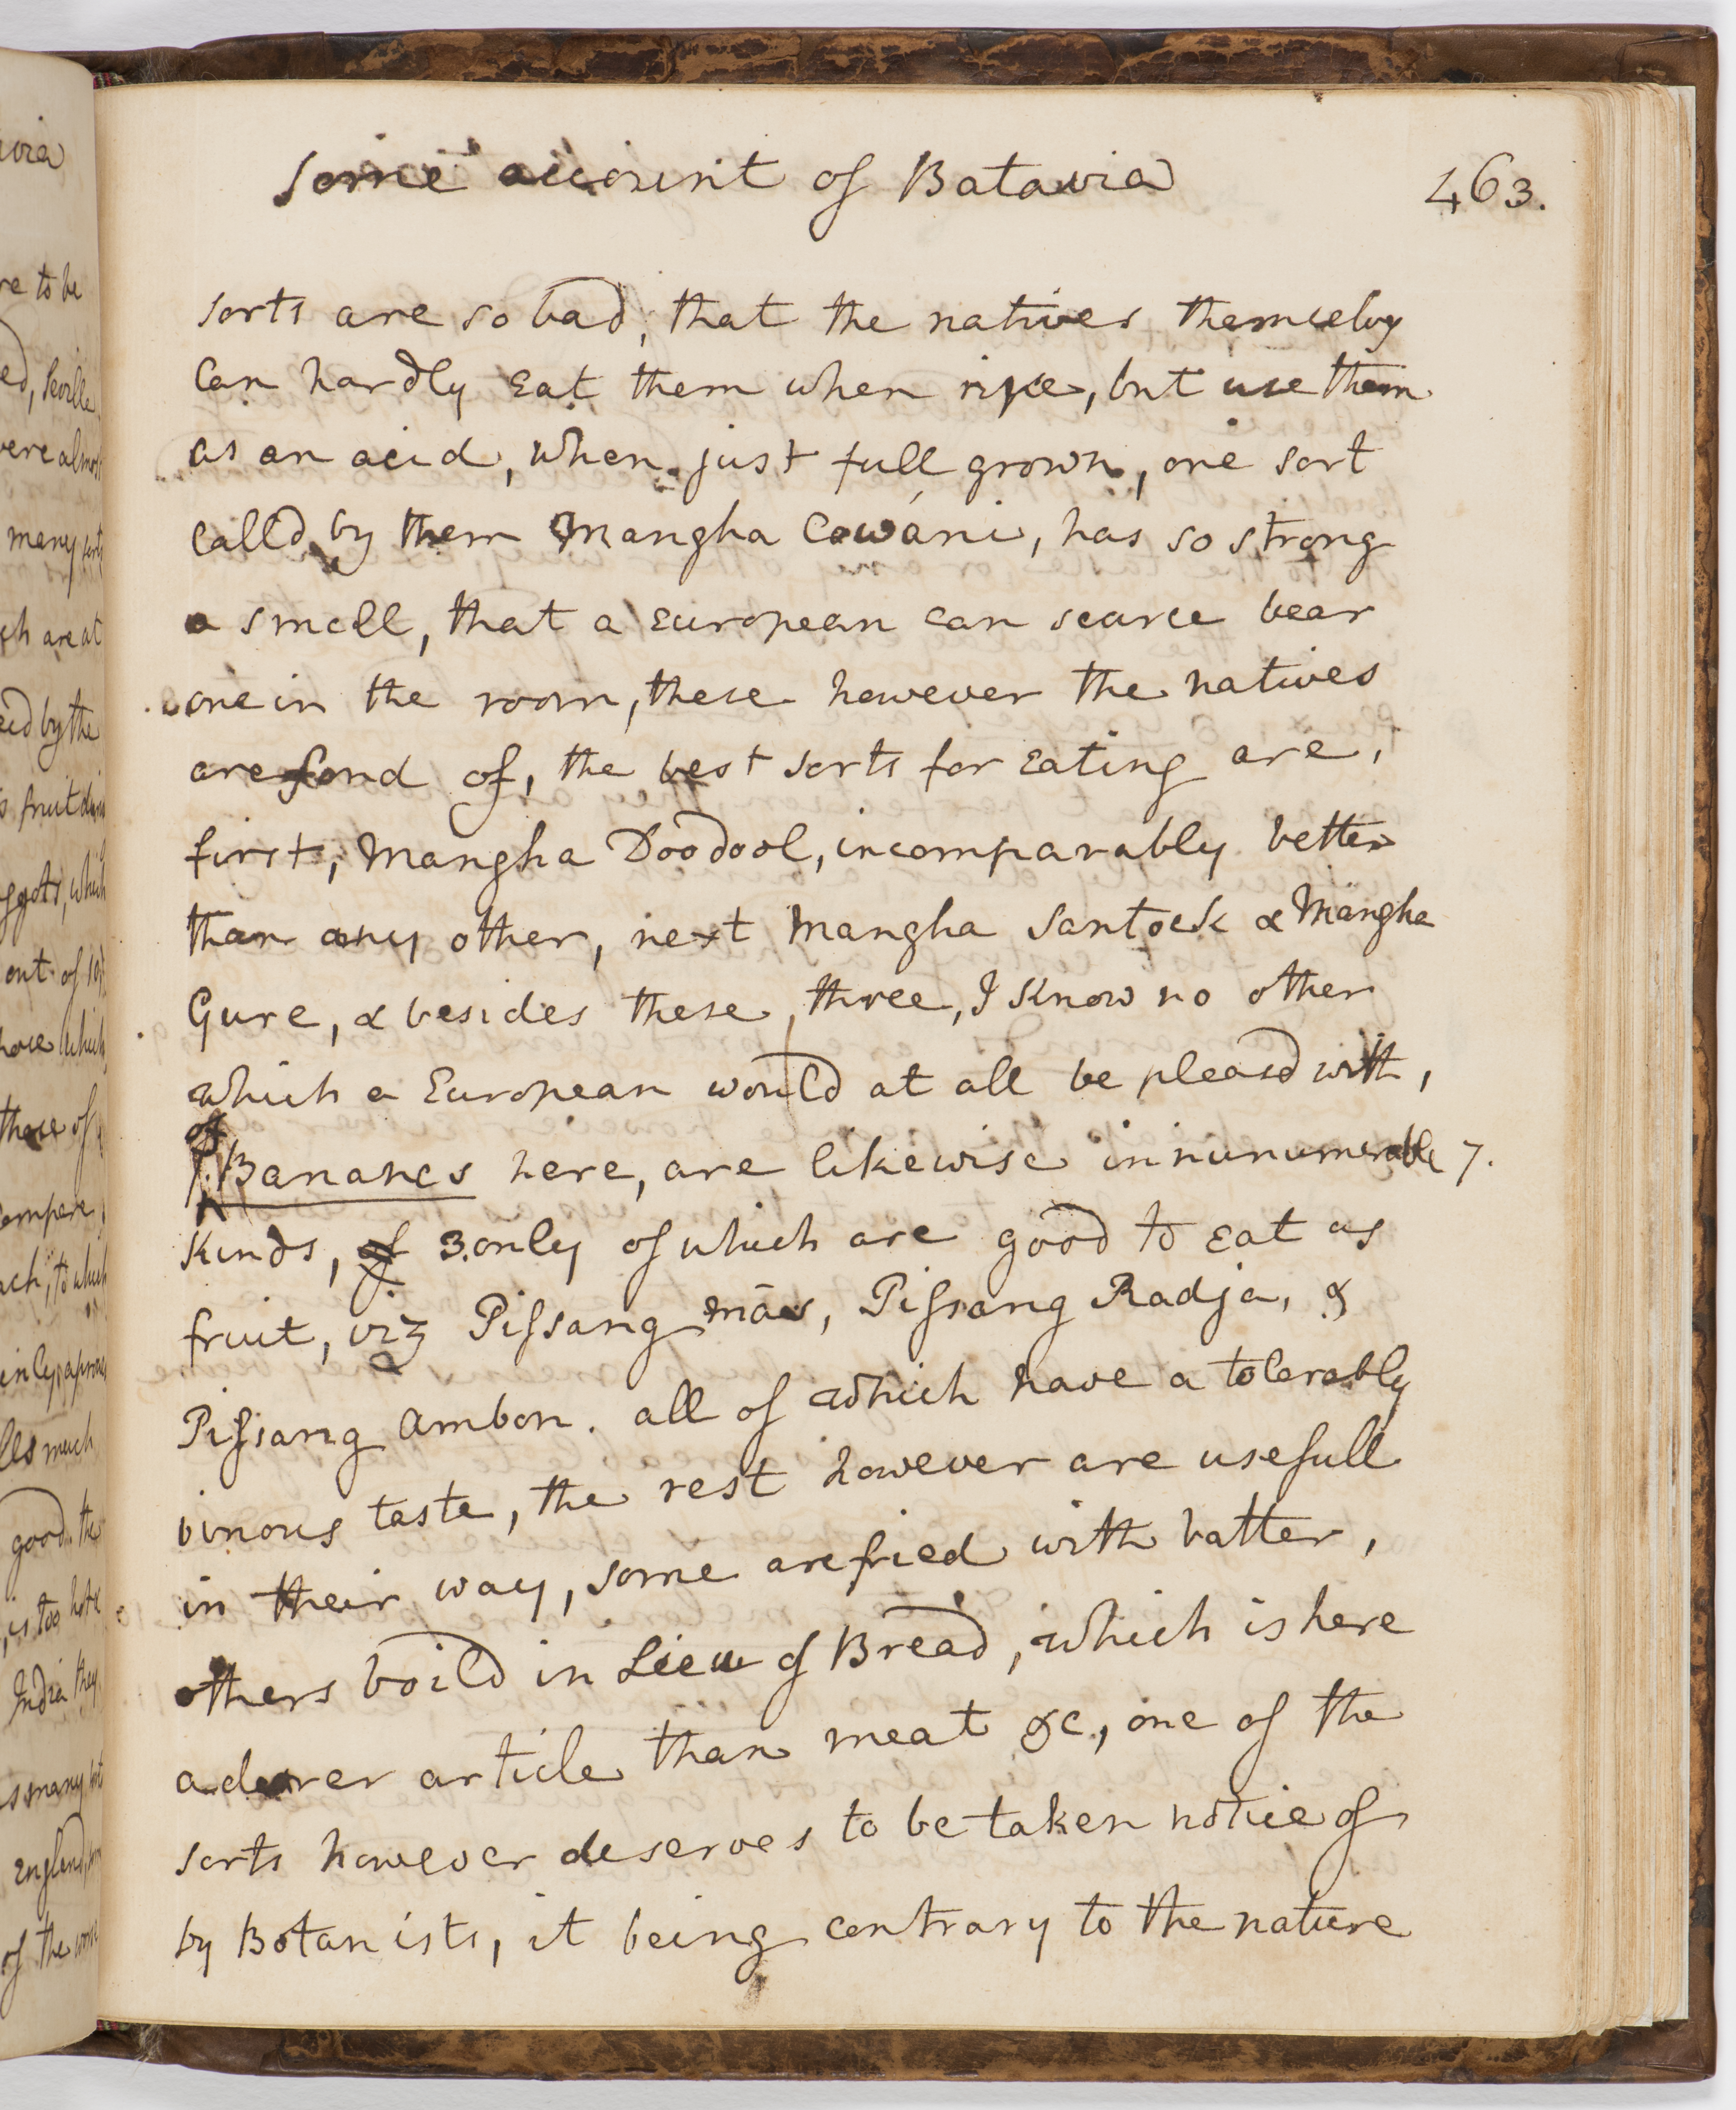 some account of Batavia
463.
sorts are so bad, that the natives themselvs
Can hardly Eat them when ripe, but use them
as an acid, when just full grown, one sort
calld by them Mangha Cowáni, has so strong
a smell, that a European can scarce bear
one in the room, these however the natives
are fond of, the best sorts for Eating are,
first, Mangha Doodool, incomparably better
than any other, next Mangha Santock & Mangha
Gure, & besides these three, I Know no other
which a European would at all be pleasd with,
of
Bananes here, are likewise innunumerable 7.
Kinds, of 3.only of which are good to Eat as
fruit, viz Pissang mās, Pissang Radja, &
Pissang Ambon. all of which have a tolerably
vinous taste, the rest however are usefull
in their way, some are fried with batter,
others boild in Lieu of Bread, which is here
a dearer article than meat &c., one of the
sorts however deserves to be taken notice of
by Botanists, it being contrary to the nature
avia
re to be
ed, Seville
were almost
many sorts
ch are at
by the
fruit
which
out of 10
which
those of
compare
ach, to which
les much
good. the
is too hot
India they
s many sorts
England,
of the